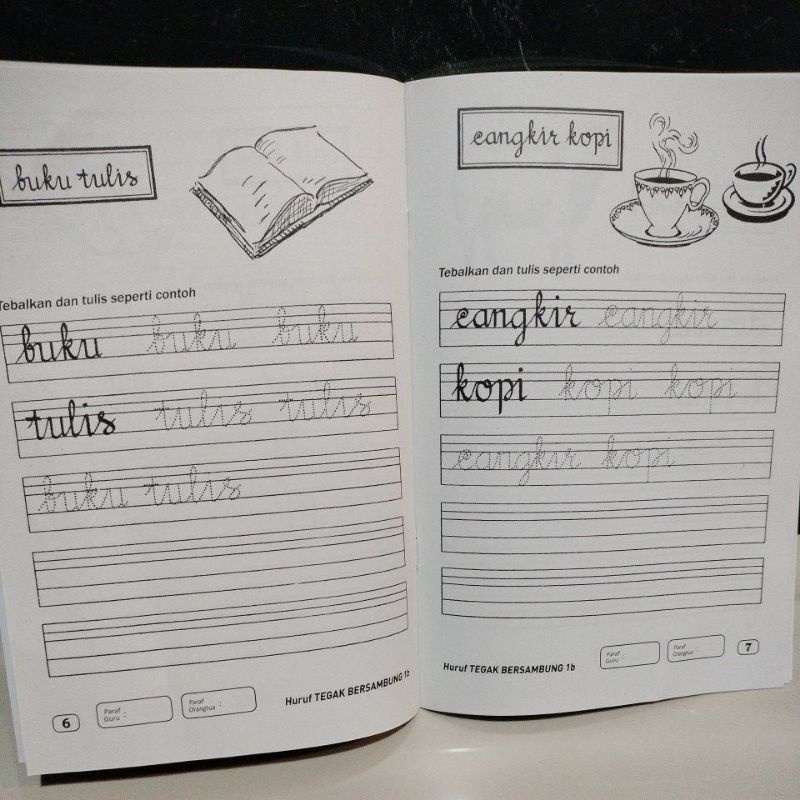 buku tulis
Tebalkan dan tulis seperti contoh
buku buku buku
tulis tulis tulis
buku tulis
6
Paraf Guru :
Paraf Orangtua :
Huruf TEGAK BERSAMBUNG 1b
cangkir kopi
Tebalkan dan tulis seperti contoh
cangkir cangkir
kopi kopi kopi
cangkir kopi
Huruf TEGAK BERSAMBUNG 1b
Paraf Guru :
Paraf Orangtua :
7